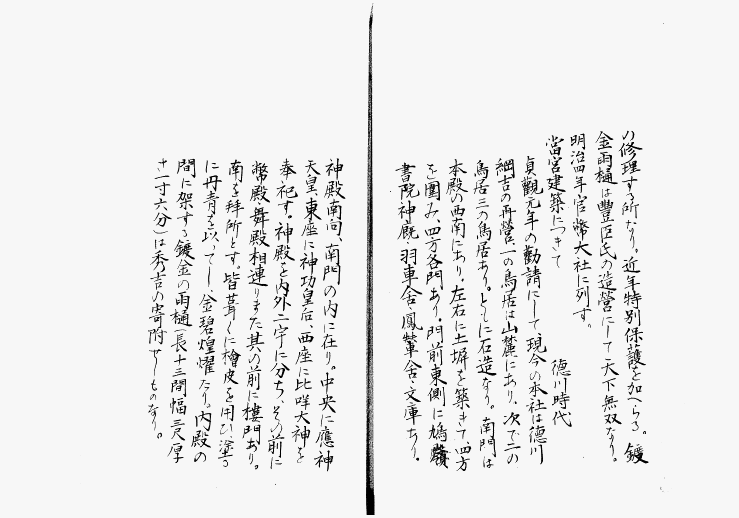 の修理する所なり。近年特別保護を加へらる。鍍
金雨樋は豊臣氏の造営にして天下無双なり。
明治四年官幣大社に列す。
當宮建築につきて　徳川時代
貞觀元年の勸請にして現今の本社は徳川
綱吉の再營、一の鳥居は山麓にあり、次で二の
鳥居三の鳥居あり。ともに石造なり。南門は
本殿の西南にあり。左右に土塀を築きて、四方
を圍み、四方各門あり。門前東側に鳩
書院神厩・羽車舎・鳳輦舎・文庫あり。
神殿南向、南門の内に在り。中央に應神
天皇、東座に神功皇后、西座に比咩大神を
奉祀す。神殿を内外二宇に分ち、その前に
幣殿・舞殿相連りまた其の前に樓門あり。
南を拜所とす。皆葺くに檜皮を用ひ、塗る
に丹青を以てし、金碧煌耀たり。内殿の
間に架する鍍金の雨樋(長十三間幅三尺厚
サ一寸六分)は秀吉の寄附せしものなり。